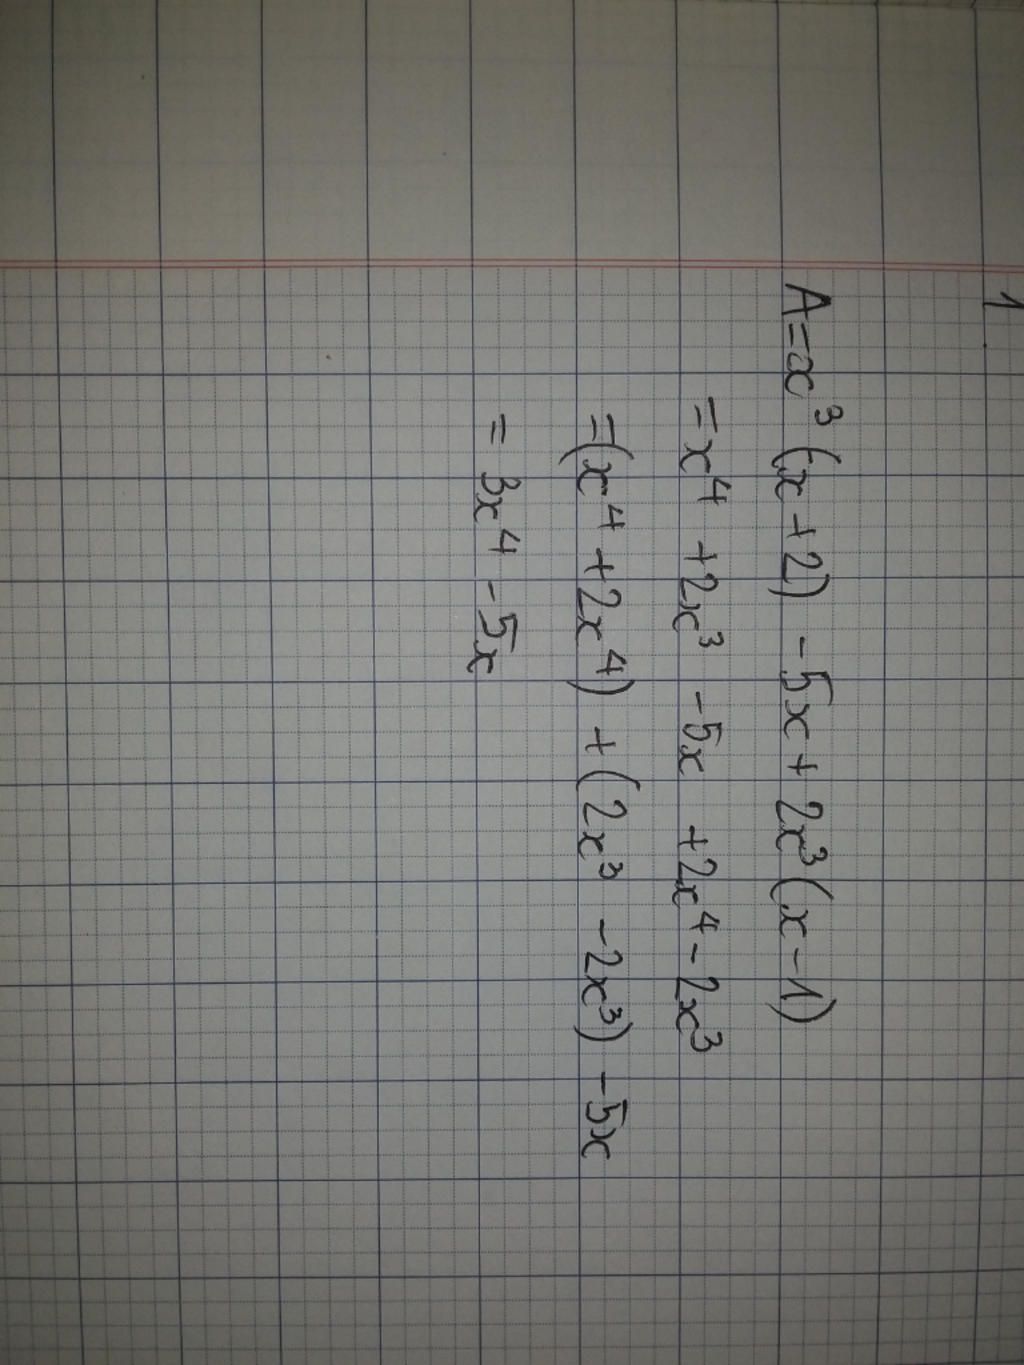 1
A = x³ (x + 2) - 5x + 2x³ (x - 1)
= x⁴ + 2x³ - 5x + 2x⁴ - 2x³
= (x⁴ + 2x⁴) + (2x³ - 2x³) - 5x
= 3x⁴ - 5x